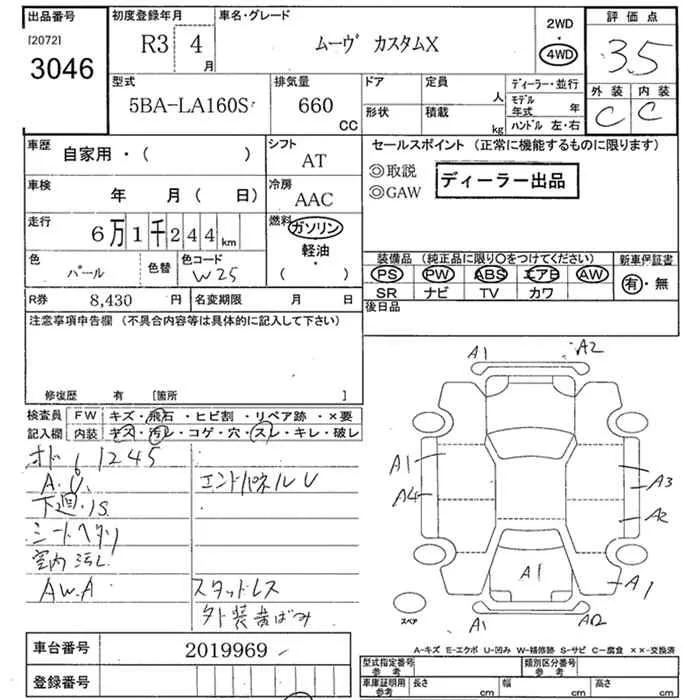 出品番号
[2072]
3046
初度登録年月
R3 4月
車名・グレード
ムーヴ カスタムX
2WD
4WD
評価点
3.5
外装 内装
C C
型式
5BA-LA160S
排気量
660
CC
ドア
定員
人
形状
積載
kg
ディーラー・並行
モデル年式 年
ハンドル 左・右
車歴
自家用・( )
シフト
AT
車検
年 月( 日)
冷房
AAC
走行
6万1千244km
燃料
ガソリン
軽油・
( )
色
パール
色替
色コード
W25
R券 8,430 円
名変期限 月 日
セールスポイント(正常に機能するものに限ります)
◎取説
◎GAW
ディーラー出品
装備品(純正品に限り○をつけてください)
PS PW ABS エアB AW
SR ナビ TV カワ
新車保証書
有・無
後日品
注意事項申告欄(不具合内容等は具体的に記入して下さい)
修復歴 有 [箇所 ]
検査員記入欄
FW キズ・飛石・ヒビ割・リペア跡・×要
内装 キズ・汚レ・コゲ・穴・スレ・キレ・破レ
オド 61245
A.U.
エンドパネルU
下廻.1S
シートヘタリ
室内汚レ
A.W.A
スタッドレス
外装黄ばみ
A1 A2
A1
A4
A3
A2
A1
A1
A1 A2
スペア
A-キズ E-エクボ U-凹み W-補修跡 S-サビ C-腐食 ××-交換済
車台番号 2019969
登録番号
型式指定番号 参考
類別区分番号 参考
車庫証明用 参考
長さ cm
幅 cm
高さ cm